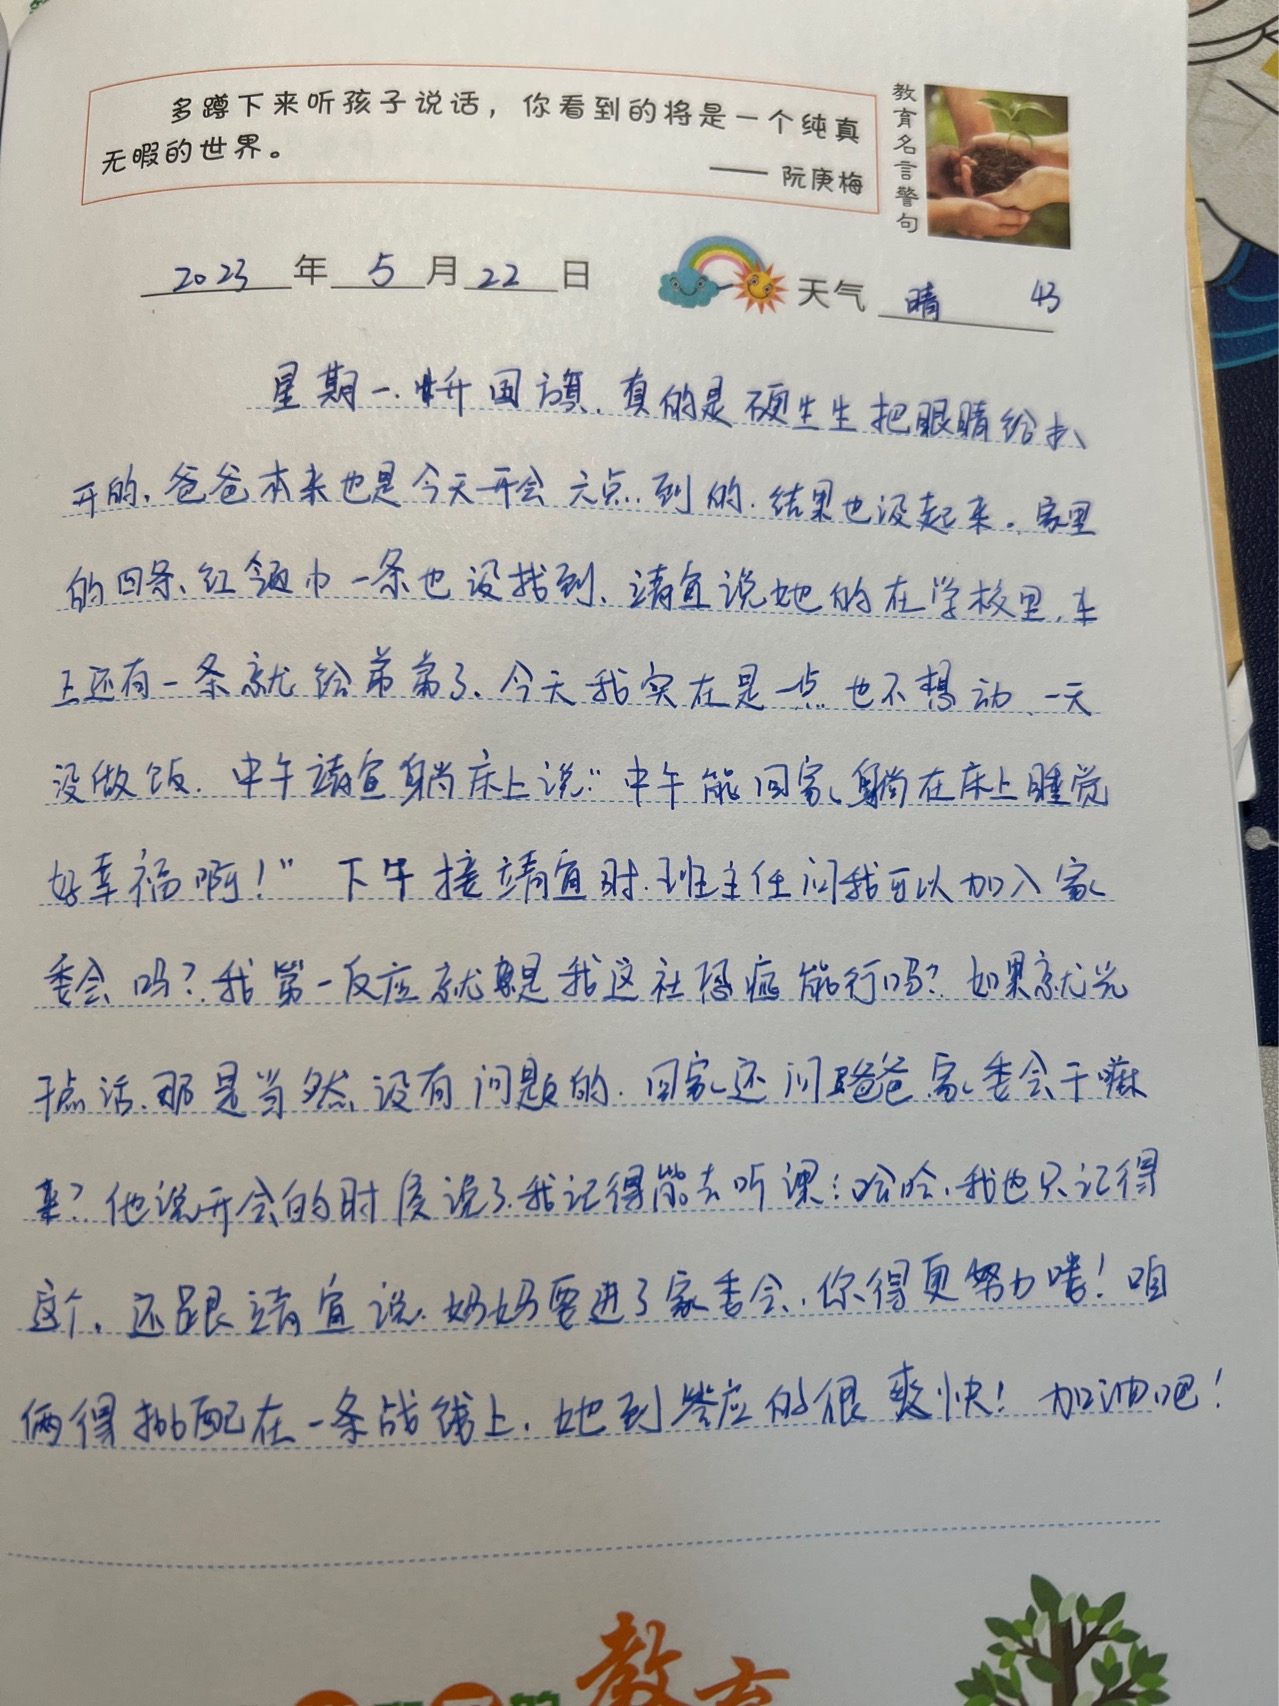 多蹲下来听孩子说话，你看到的将是一个纯真
无暇的世界。
—— 阮庚梅
教育名言警句
2023年5月22日
天气 晴 43
星期一.升国旗.真的是硬生生把眼睛给扒
开的.爸爸本来也是今天开会六点.到的.结果也没起来.家里
的四条.红领巾一条也没找到.靖宜说她的在学校里.车
上还有一条就给弟弟了.今天我实在是一点也不想动.一天
没做饭.中午靖宜躺床上说:"中午能回家躺在床上睡觉
好幸福啊!"下午接靖宜时.班主任问我可以加入家
委会吗?我第一反应就是我这社恐症能行吗?如果就光
干点活.那是当然没有问题的.回家还问爸爸家委会干嘛
来?他说开会的时候说了.我记得能去听课:哈哈.我也只记得
这个.还跟靖宜说.妈妈要进了家委会.你得更努力喽!咱
俩得搭配在一条战线上.她到答应的很爽快!加油吧!
教育